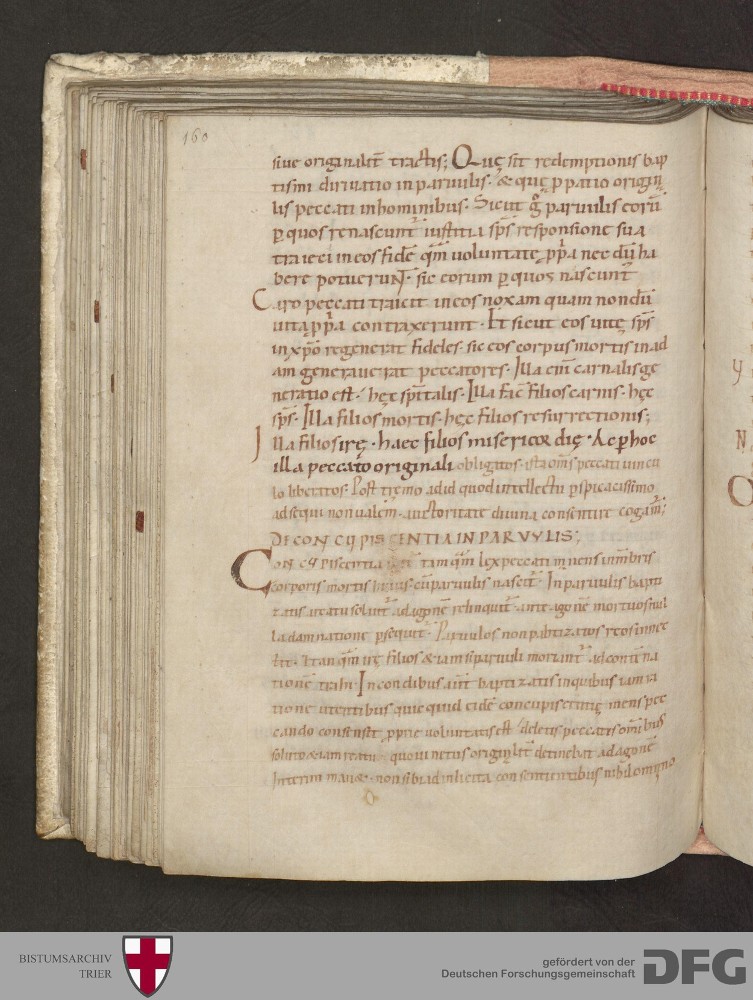 160
siue originalit̄ tractis; Quę sit redemptionis bap
tismi diriuatio in paruulis· & quę ꝓpatio origin
lis peccati in hominibus· Sicut g̊ paruulis corū
ꝑ quos renascunt̄ iustitia sp̄s responsione sua
traieci in eos fidē qm̄ voluntatę pp̄a nec dū ha
bere potuerunt· sic eorum ꝑ quos nascunt̄
Caro peccati traicit in eos noxam quam nondū
uita pp̄a contraxerunt· Et sicut eos uitę sp̄s
in xp̄o regenerat fideles· sic eos corpus mortis in ad
am generauerat peccatores· Illa eni carnalis ge
neratio est· hęc sp̄italis· Illa facit filios carnis· hęc
sp̄s· Illa filios mortis· hęc filios resurrectionis;
Illa filios irę· haec filios misericordię· Ac ꝑ hoc
illa peccato originali obligatos· ista om̄s peccati uincu
lo liberatos· Postremo ad id quod intellectu ꝑspicacissimo
adsequi non ualem̄· auctoritate diuina consentire cogam̄;
DE CONCUPISCENTIA IN PARVVLIS;
Concupiscentia tamqm̄ lex peccati manens in mēbris
corporis mortis huius cū paruulis nascit̄· In paruulis bapti
zatis reatu soluit̄ ad agonē relinquit̄· ante agonē mortuos nul
la damnatione ꝑsequit̄· Paruulos non babtizatos reos innec
tit· Et tanqm̄ irę filios & iam si paruuli moriant̄ ad condēna
tionē trahit· In grandibus aūt baptizatis in quibus iam ra
tione utentibus quicquid eidē concupiscentię mens pec
cando consensit proprie uoluntatis est· deletis peccatis om̄ibus
soluto & iam reatu· quo uinctus originalit̄ detinebat ad agonē
Interim man&· non sibi ad inlicita consentientibus nihil omnino
BISTUMSARCHIV
TRIER
gefördert von der
Deutschen Forschungsgemeinschaft
DFG